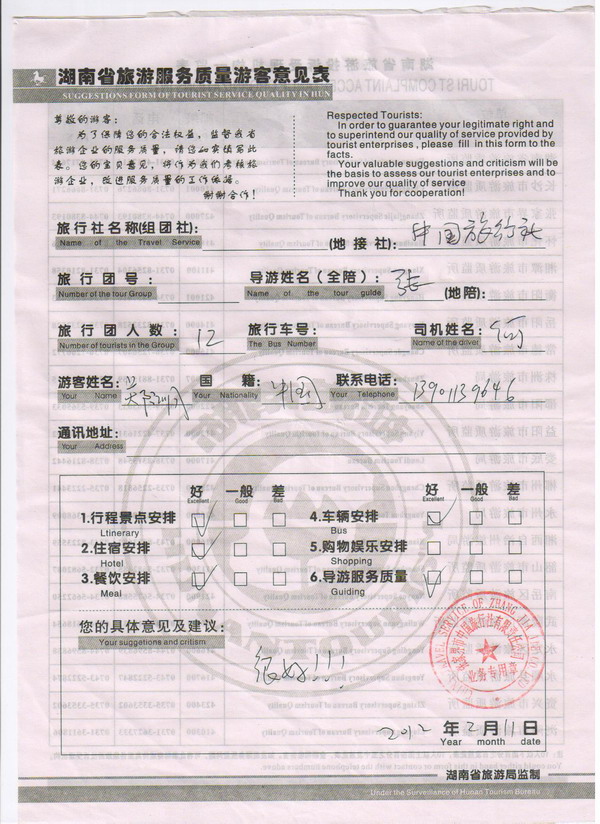 湖南省旅游服务质量游客意见表
SUGGESTIONS FORM OF TOURIST SERVICE QUALITY IN HUN
尊敬的游客：
为了保障您的合法权益，监督我省
旅游企业的服务质量，请您如实填写此
表。您的宝贵意见，将作为我们考核旅
游企业，改进服务质量的工作依据。
谢谢合作！
Respected Tourists:
In order to guarantee your legitimate right and
to superintend our quality of service provided by
tourist enterprises , please fill in this form to the
facts.
Your valuable suggestions and criticism will
be the basis to assess our tourist enterprises and to
improve our quality of service
Thank you for cooperation!
旅行社名称(组团社): (地接社): 中国旅行社
Name of the Travel Service
旅行团号: 导游姓名(全陪): 张 (地陪):
Number of the tour Group Name of the tour guide
旅行团人数: 12 旅行车号: 司机姓名:
Number of tourists in the Group The Bus Number Name of the driver
游客姓名: 国籍: 中国 联系电话: 13901139646
Your Name Your Nationality Your Telephone
通讯地址:
Your Address
好 一般 差 好 一般 差
Excellent Good Bad Excellent Good Bad
1.行程景点安排 4.车辆安排
Ltinerary Bus
2.住宿安排 5.购物娱乐安排
Hotel Shopping
3.餐饮安排 6.导游服务质量
Meal Guiding
您的具体意见及建议:
Your suggestions and critism
很好!!!
业务专用章
2012 年 2 月 11 日
Year month date
湖南省旅游局监制
Under the Surveillence of Hunan Tourism Bureau